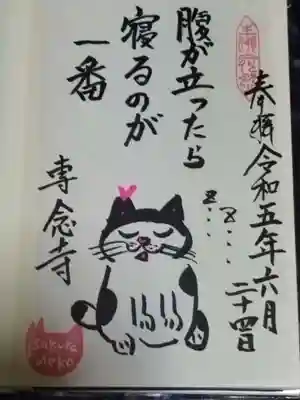 奉拝 令和五年六月
二十四日
腹が立ったら
寝るのが
一番
z...
z...
専念寺
sakura
neko